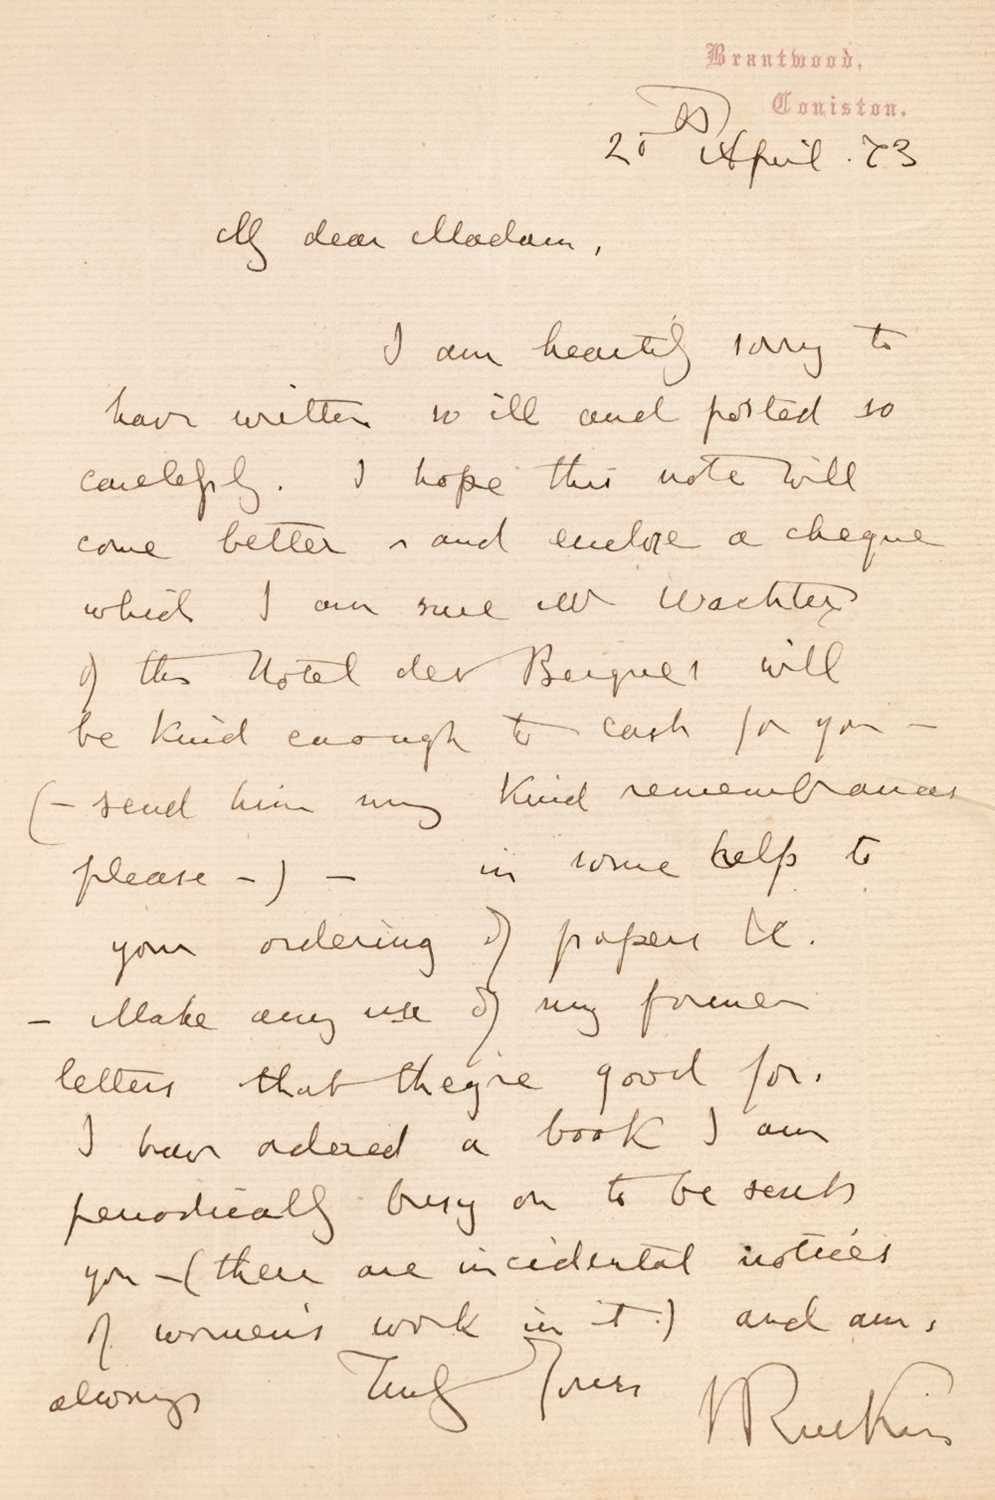 Brantwood,
Coniston.
20th April . 73
My dear Madam,
I am heartily sorry to
have written so ill and posted so
carelessly. I hope this note will
come better - and enclose a cheque
which I am sure Mr Wachter
of the Hotel des Bergues will
be kind enough to cash for you -
(- send him my kind remembrances
please -) - in some help to
your ordering of papers &c.
- Make any use of my former
letters that they're good for.
I have ordered a book I am
periodically busy on to be sent
you - (there are incidental notices
of women's work in it.) and am,
always Truly Yours
J Ruskin